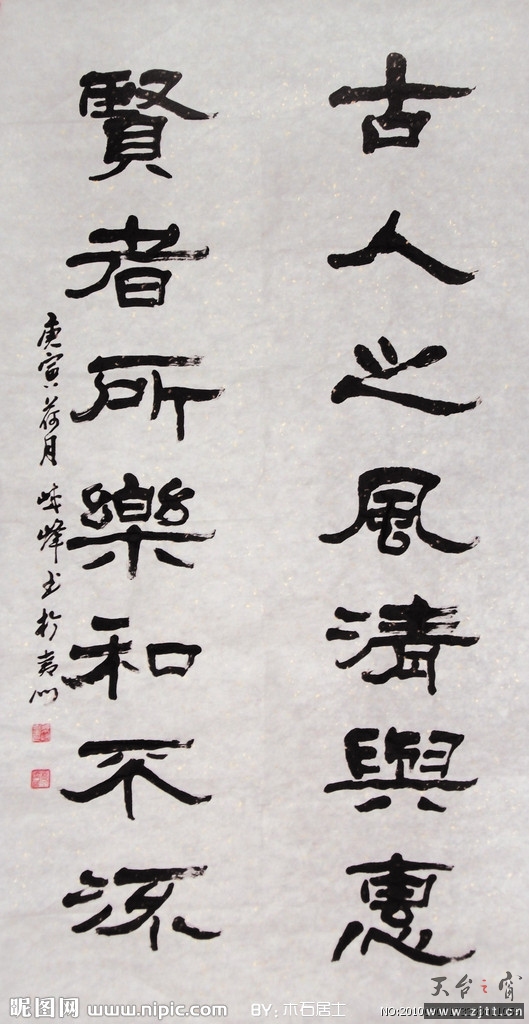 古人之風清與惠
賢者所樂和不流
庚寅荷月峻峰书於夷门
昵图网 www.nipic.com BY:木石居士 NO:2010
天台之窗
www.zjtt.cn